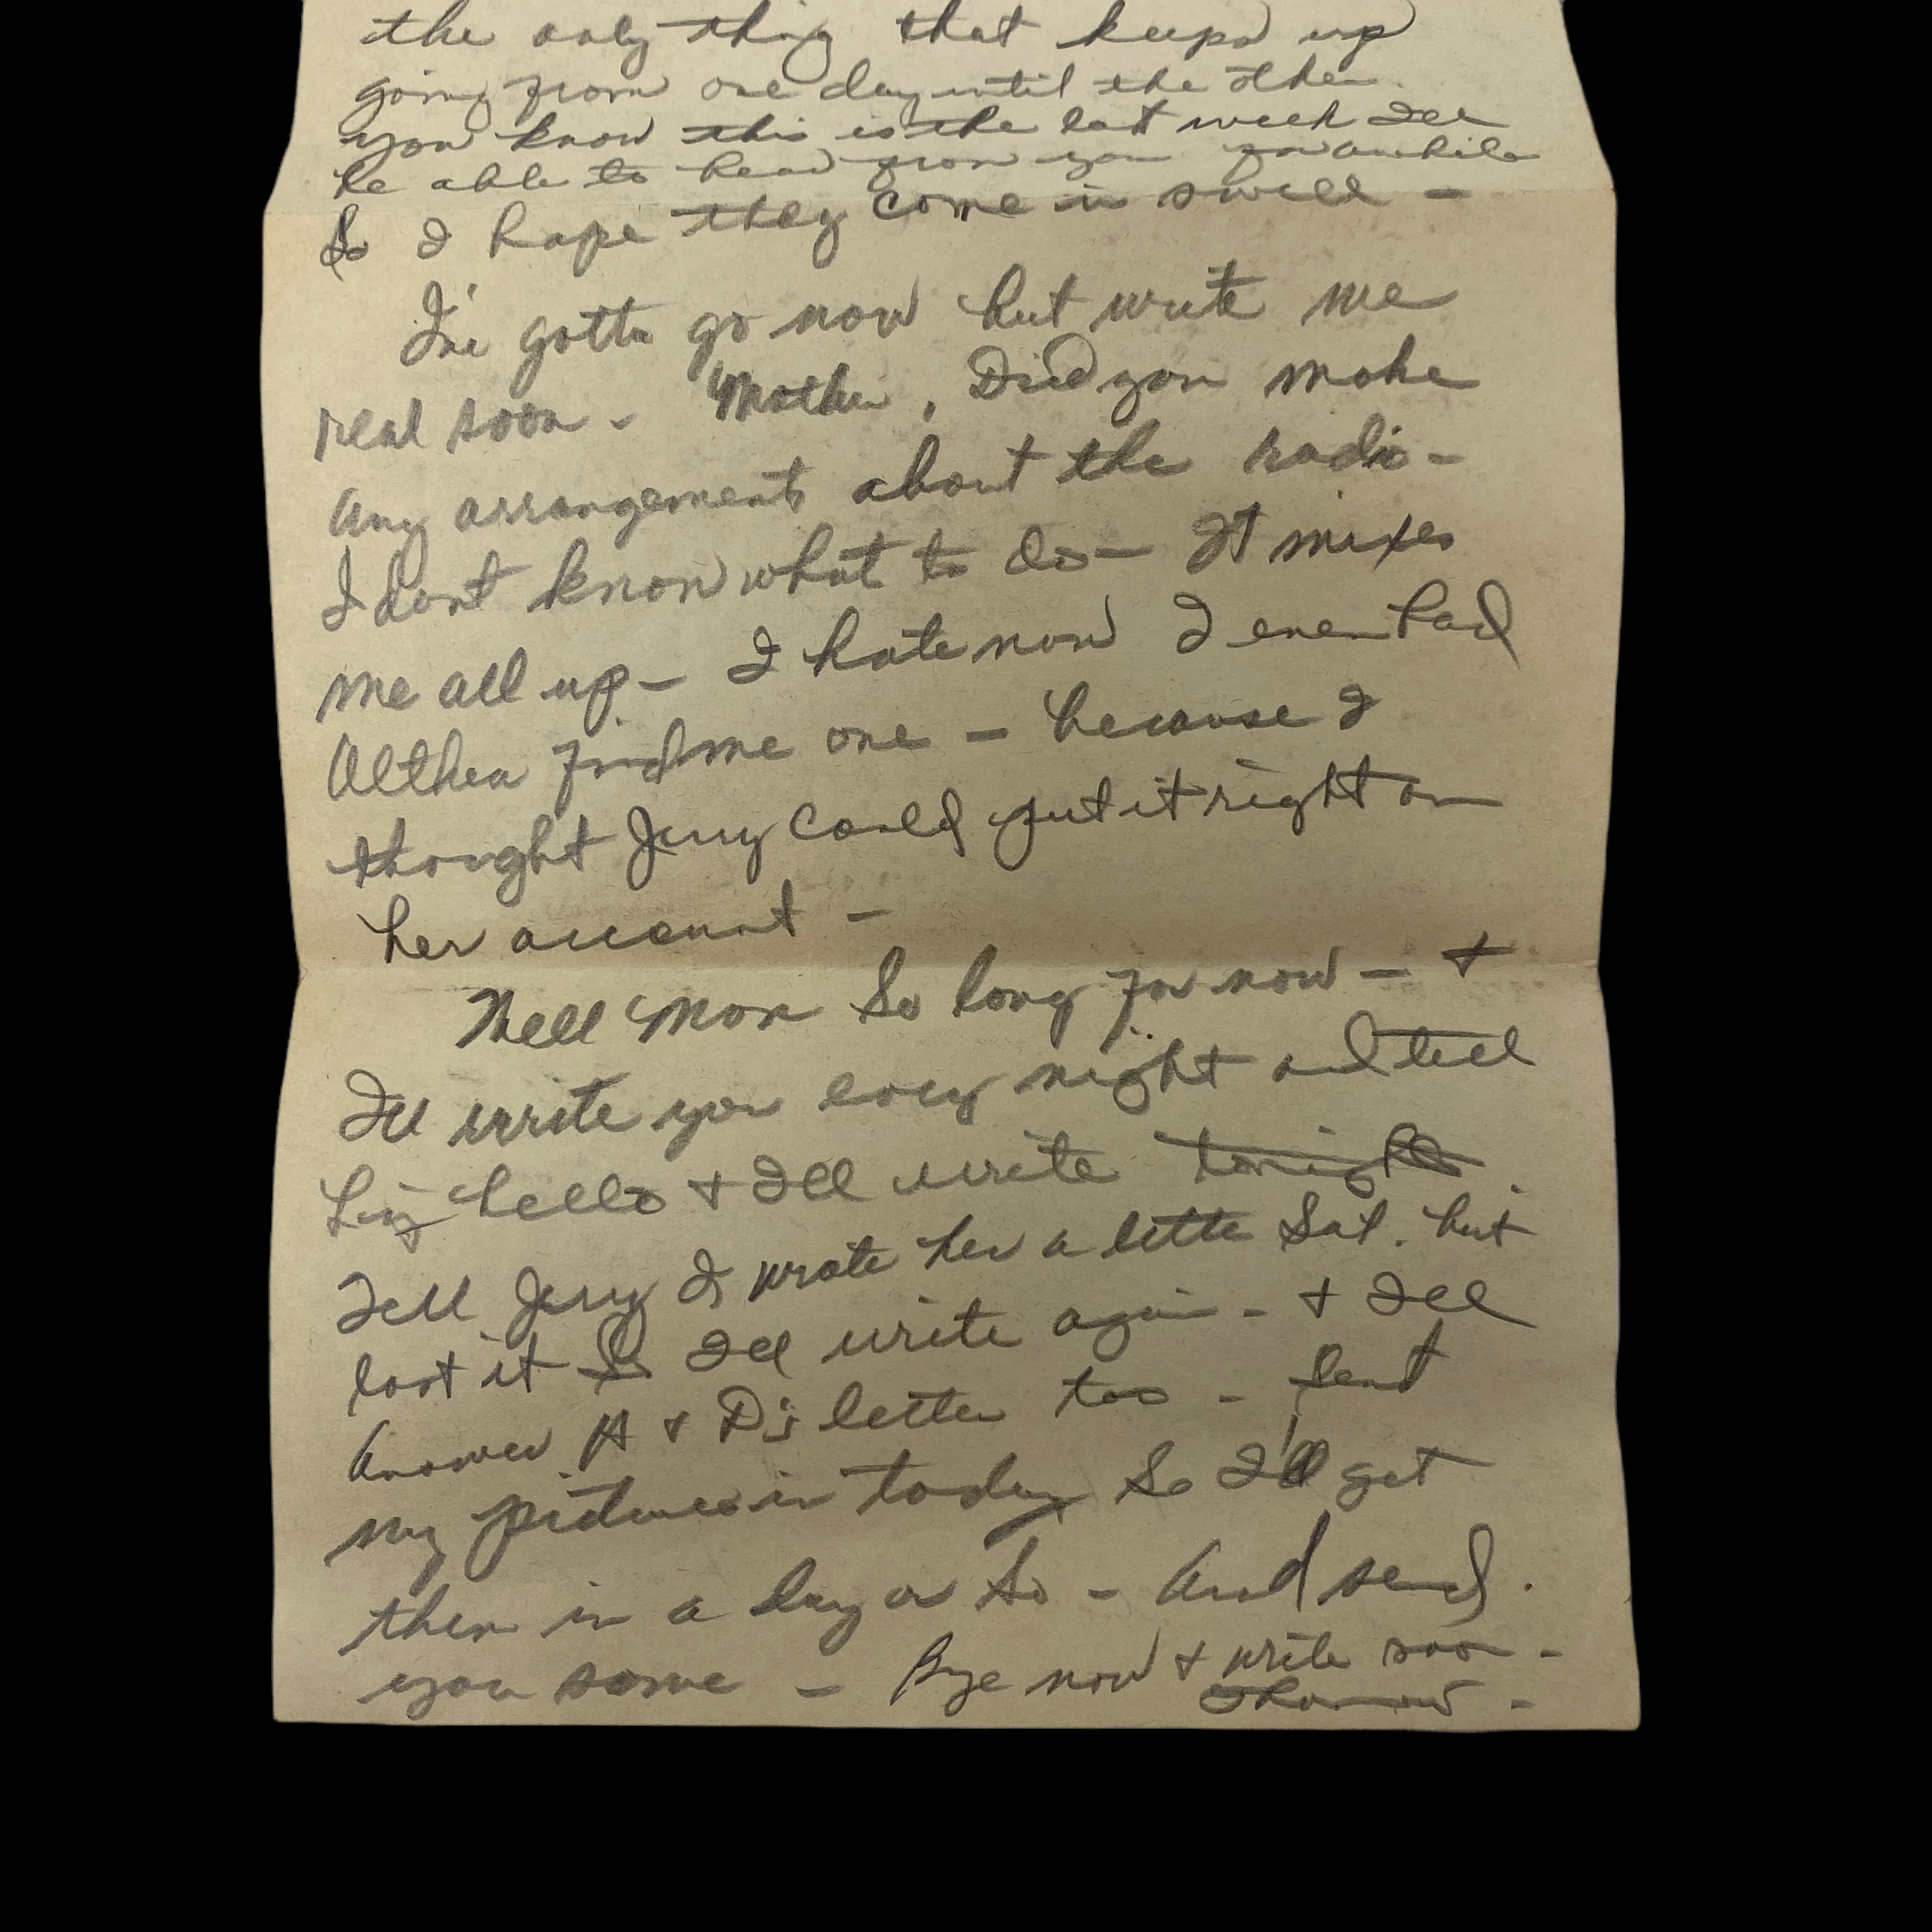 the only thing that keeps up
going from one day until the other.
you know this is the last week Ill
be able to hear from you for awhile
So I hope they come in swell -
I've gotta go now but write me
real soon - Mother, Did you make
any arrangements about the radio -
I dont know what to do - It mixes
me all up - I hate now I even had
Althea find me one - because I
thought Jerry could put it right on
her account -
Well Mom So long for now - +
Ill write you every night and tell
Liz hello + Ill write tonight
Tell Jerry I wrote her a letter Sat. but
lost it So Ill write again - + Ill
Answer A + D's letter too - Sent
my pictures in today So I'll get
them in a day or So - And send
you some - Bye now + write soon -